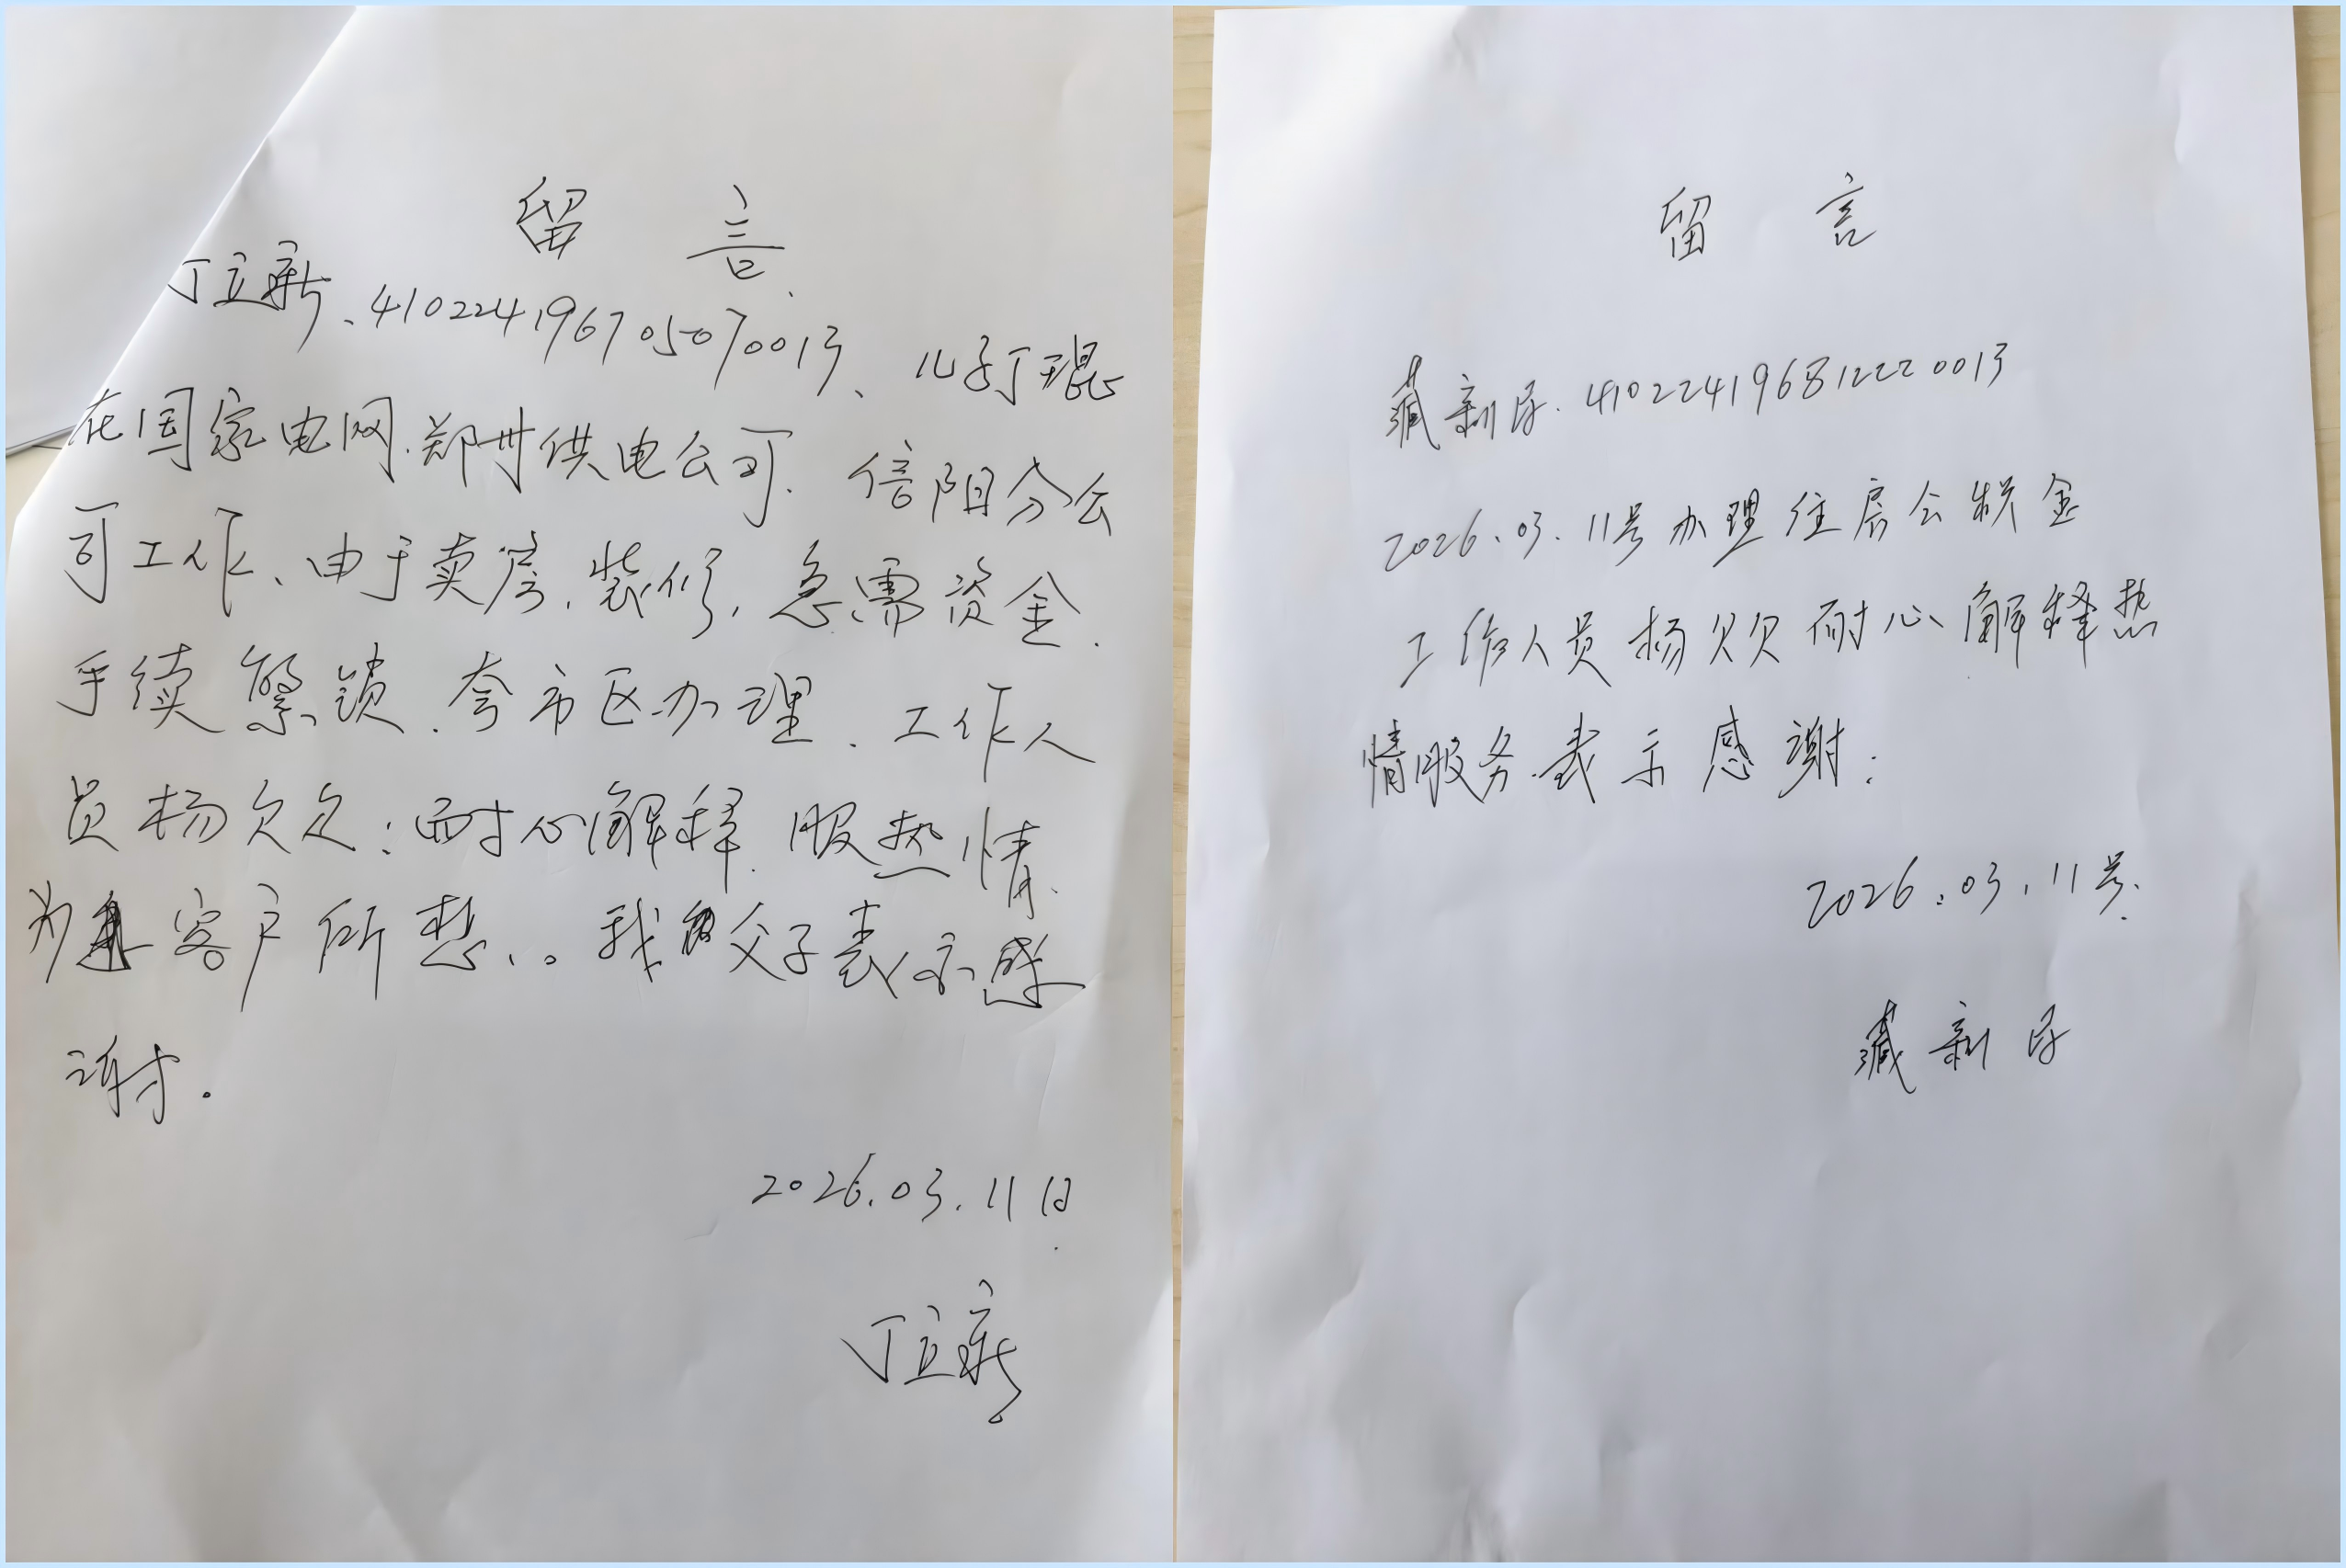 留 言
丁立新、410224196705070013、儿子丁琨
在国家电网.郑州供电公司.信阳分公
司工作、由于卖房.装修,急需资金.
手续繁锁.夸市区办理.工作人
员杨欠欠:耐心解释.服热情.
为客户所想..。我父子表示感
谢.
2026.03.11日
丁立新
留 言
藏新. 410224196812220013
2026.03.11号办理住房公积金
工作人员杨欠欠耐心解释热
情服务.表示感谢:
2026.03.11号.
藏新